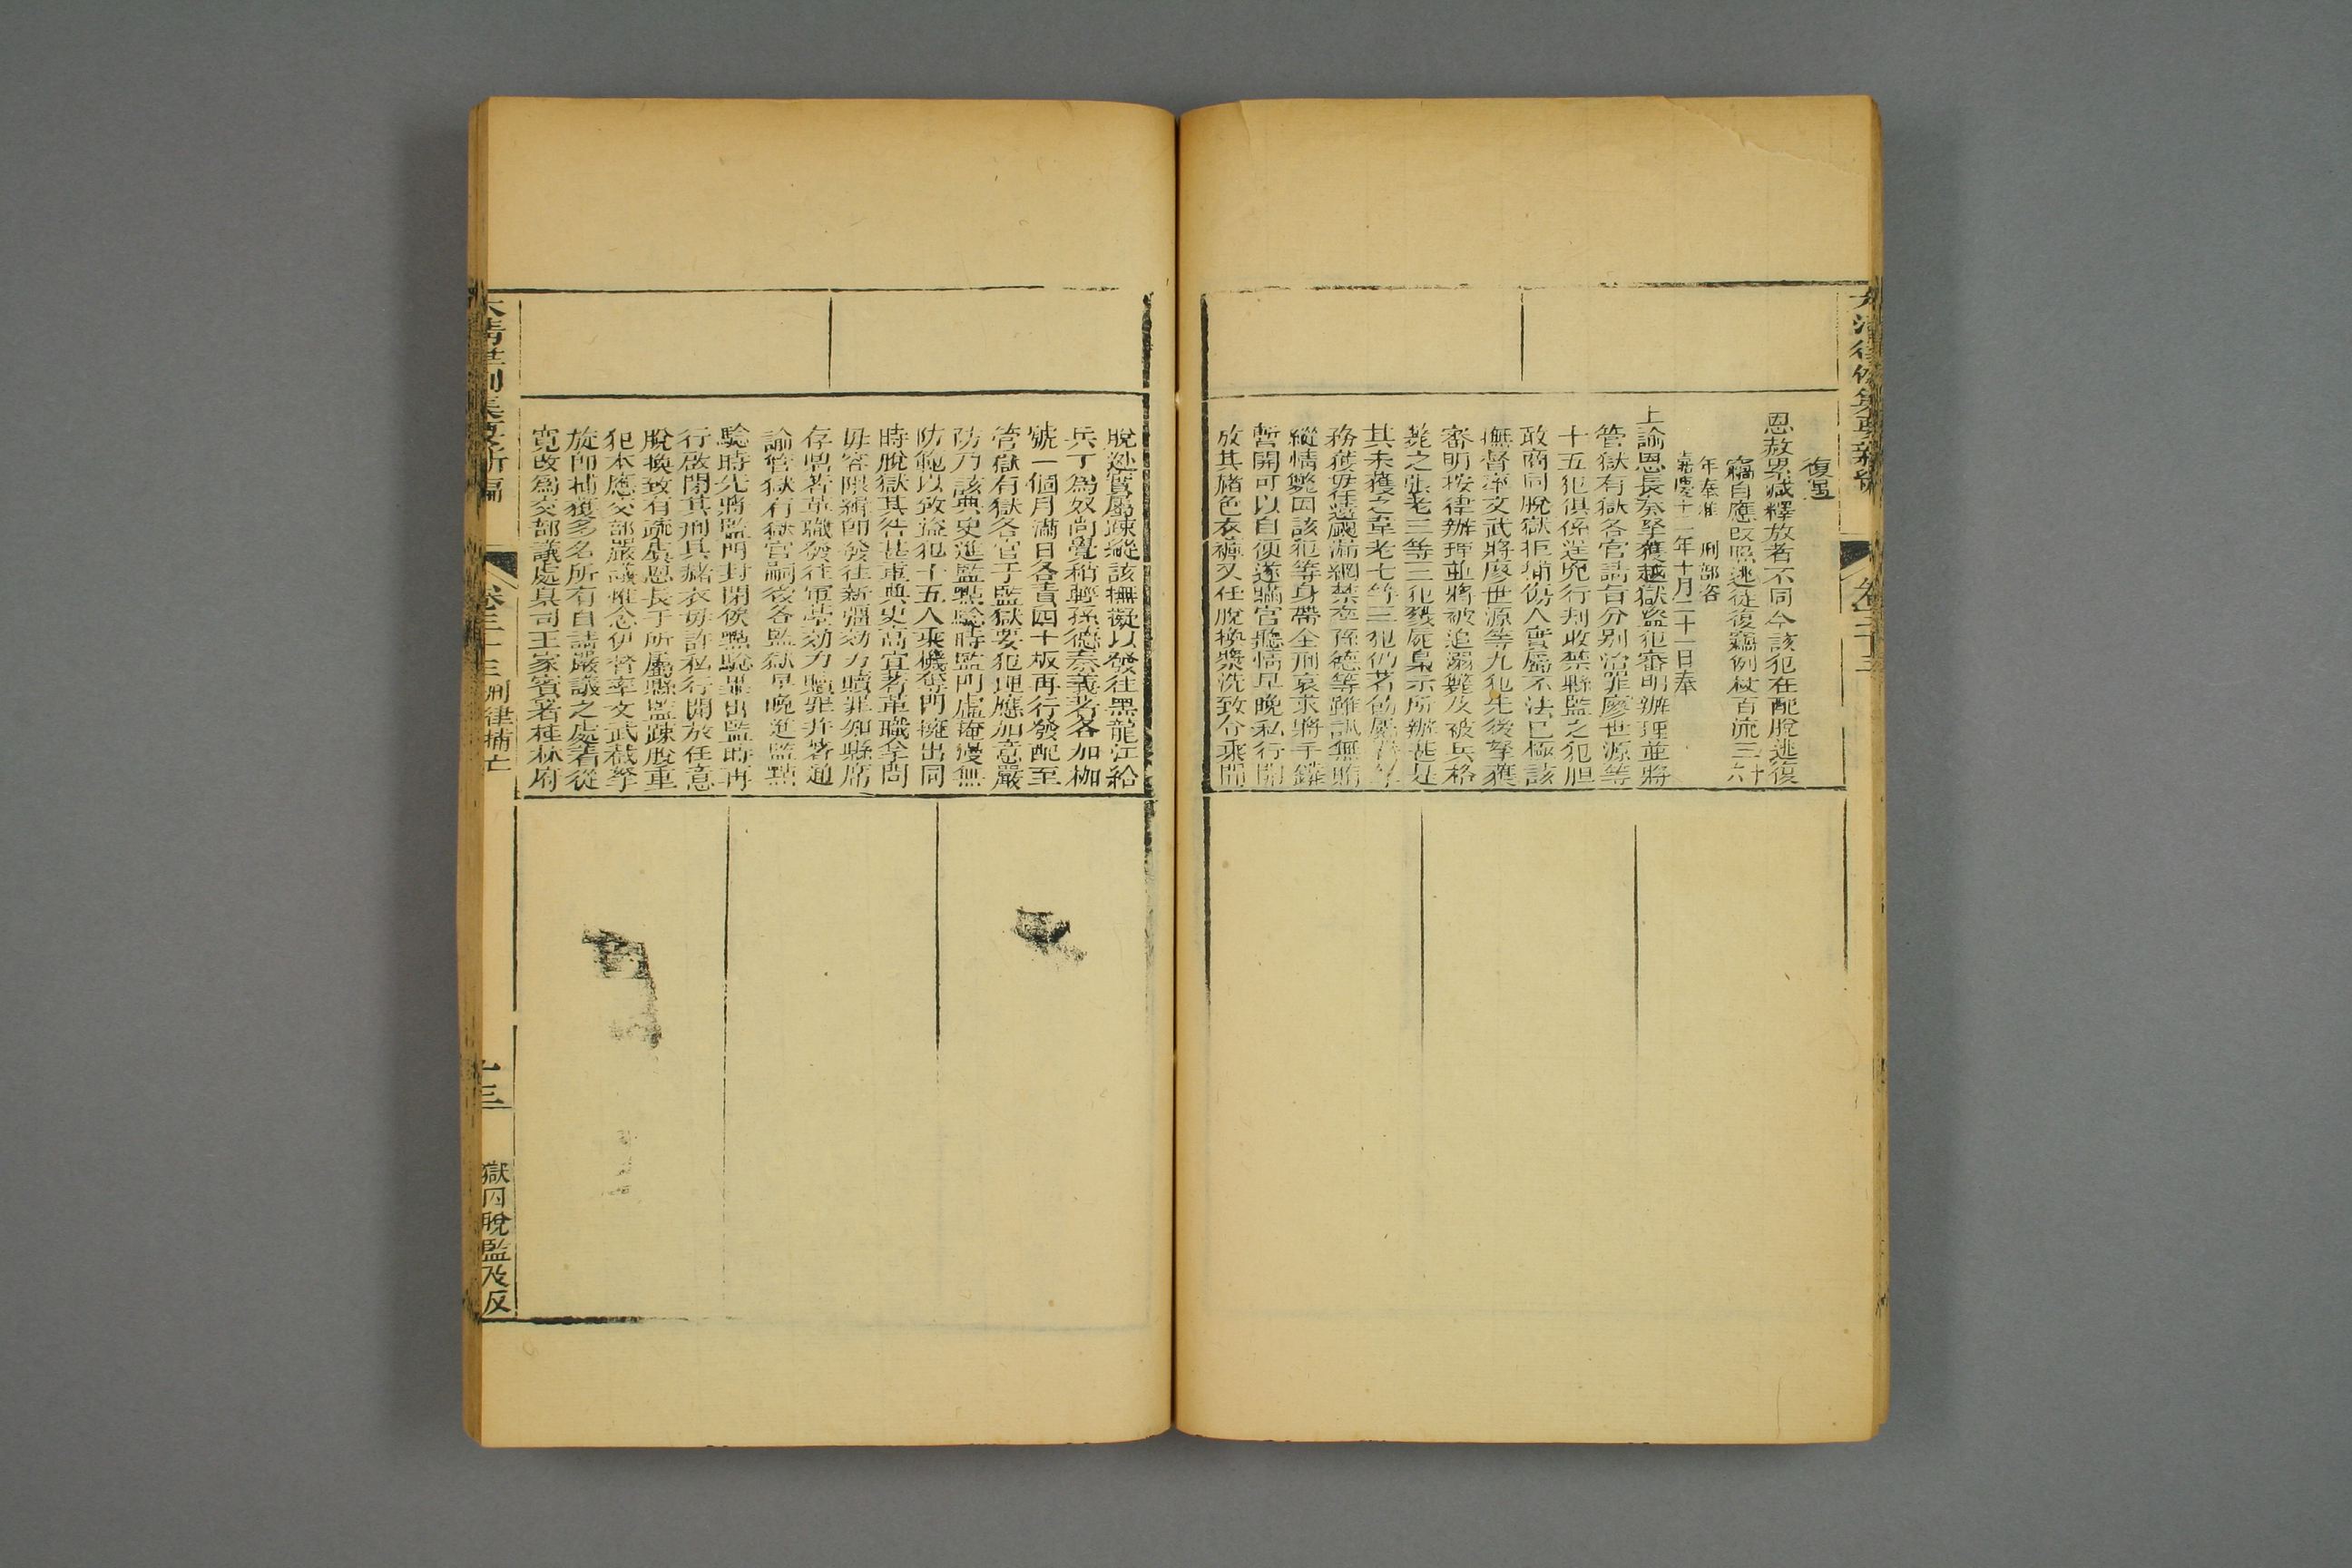 大清律例集要新編
卷三十三
復蒙
恩赦累減釋放者不同今該犯在配脫逃復
竊自應改照逃徒復竊例杖百流三千
年奉准 刑部咨
嘉慶十一年十月二十一日奉
上諭恩長奏拏獲越獄盜犯審明辦理並將
管獄有獄各官請旨分別治罪廖世源等
十五犯俱係逞兇行刦收禁縣監之犯胆
敢商同脫獄拒捕傷人實屬不法已極該
撫督率文武將廖世源等九犯先後拏獲
審明按律辦理並將被追溺斃及被兵格
斃之張老三等三犯戮屍梟示所辦甚是
其未獲之韋老七等三犯仍著飭屬
務獲毋任遠颺漏網禁卒孫德等雖訊無賄
縱情獘因該犯等身帶全刑哀求將手鐐
暫開可以自便遂瞞官聽情早晚私行開
放其赭色衣褲又任脫換漿洗致令乘間
脫逃實屬疎縱該撫擬以發往黑龍江給
兵丁為奴尚覺稍輕孫德秦義著各加枷
號一個月滿日各責四十板再行發配至
管獄有獄各官于監獄要犯理應加意嚴
防乃該典史進監點驗時監門虛掩漫無
防範以致盜犯十五人乘機奪門擁出同
時脫獄其咎甚重典史高宜著革職拏問
毋容限緝即發往新疆効力贖罪知縣席
存鼎著革職發往軍臺効力贖罪并著通
諭管獄有獄官嗣後各監獄早晚進監點
驗時先將監門封閉俟點驗畢出監時再
行啟閉其刑具赭衣毋許私行開放任意
脫換致有疏虞恩長于所屬縣監疎脫重
犯本應交部嚴議惟念伊督率文武截拏
旋即捕獲多名所有自請嚴議之處著從
寬改為交部議處臬司王家賓著桂林府
大清律例集要新編
卷三十三 刑律捕亡
十三
獄囚脫監及反